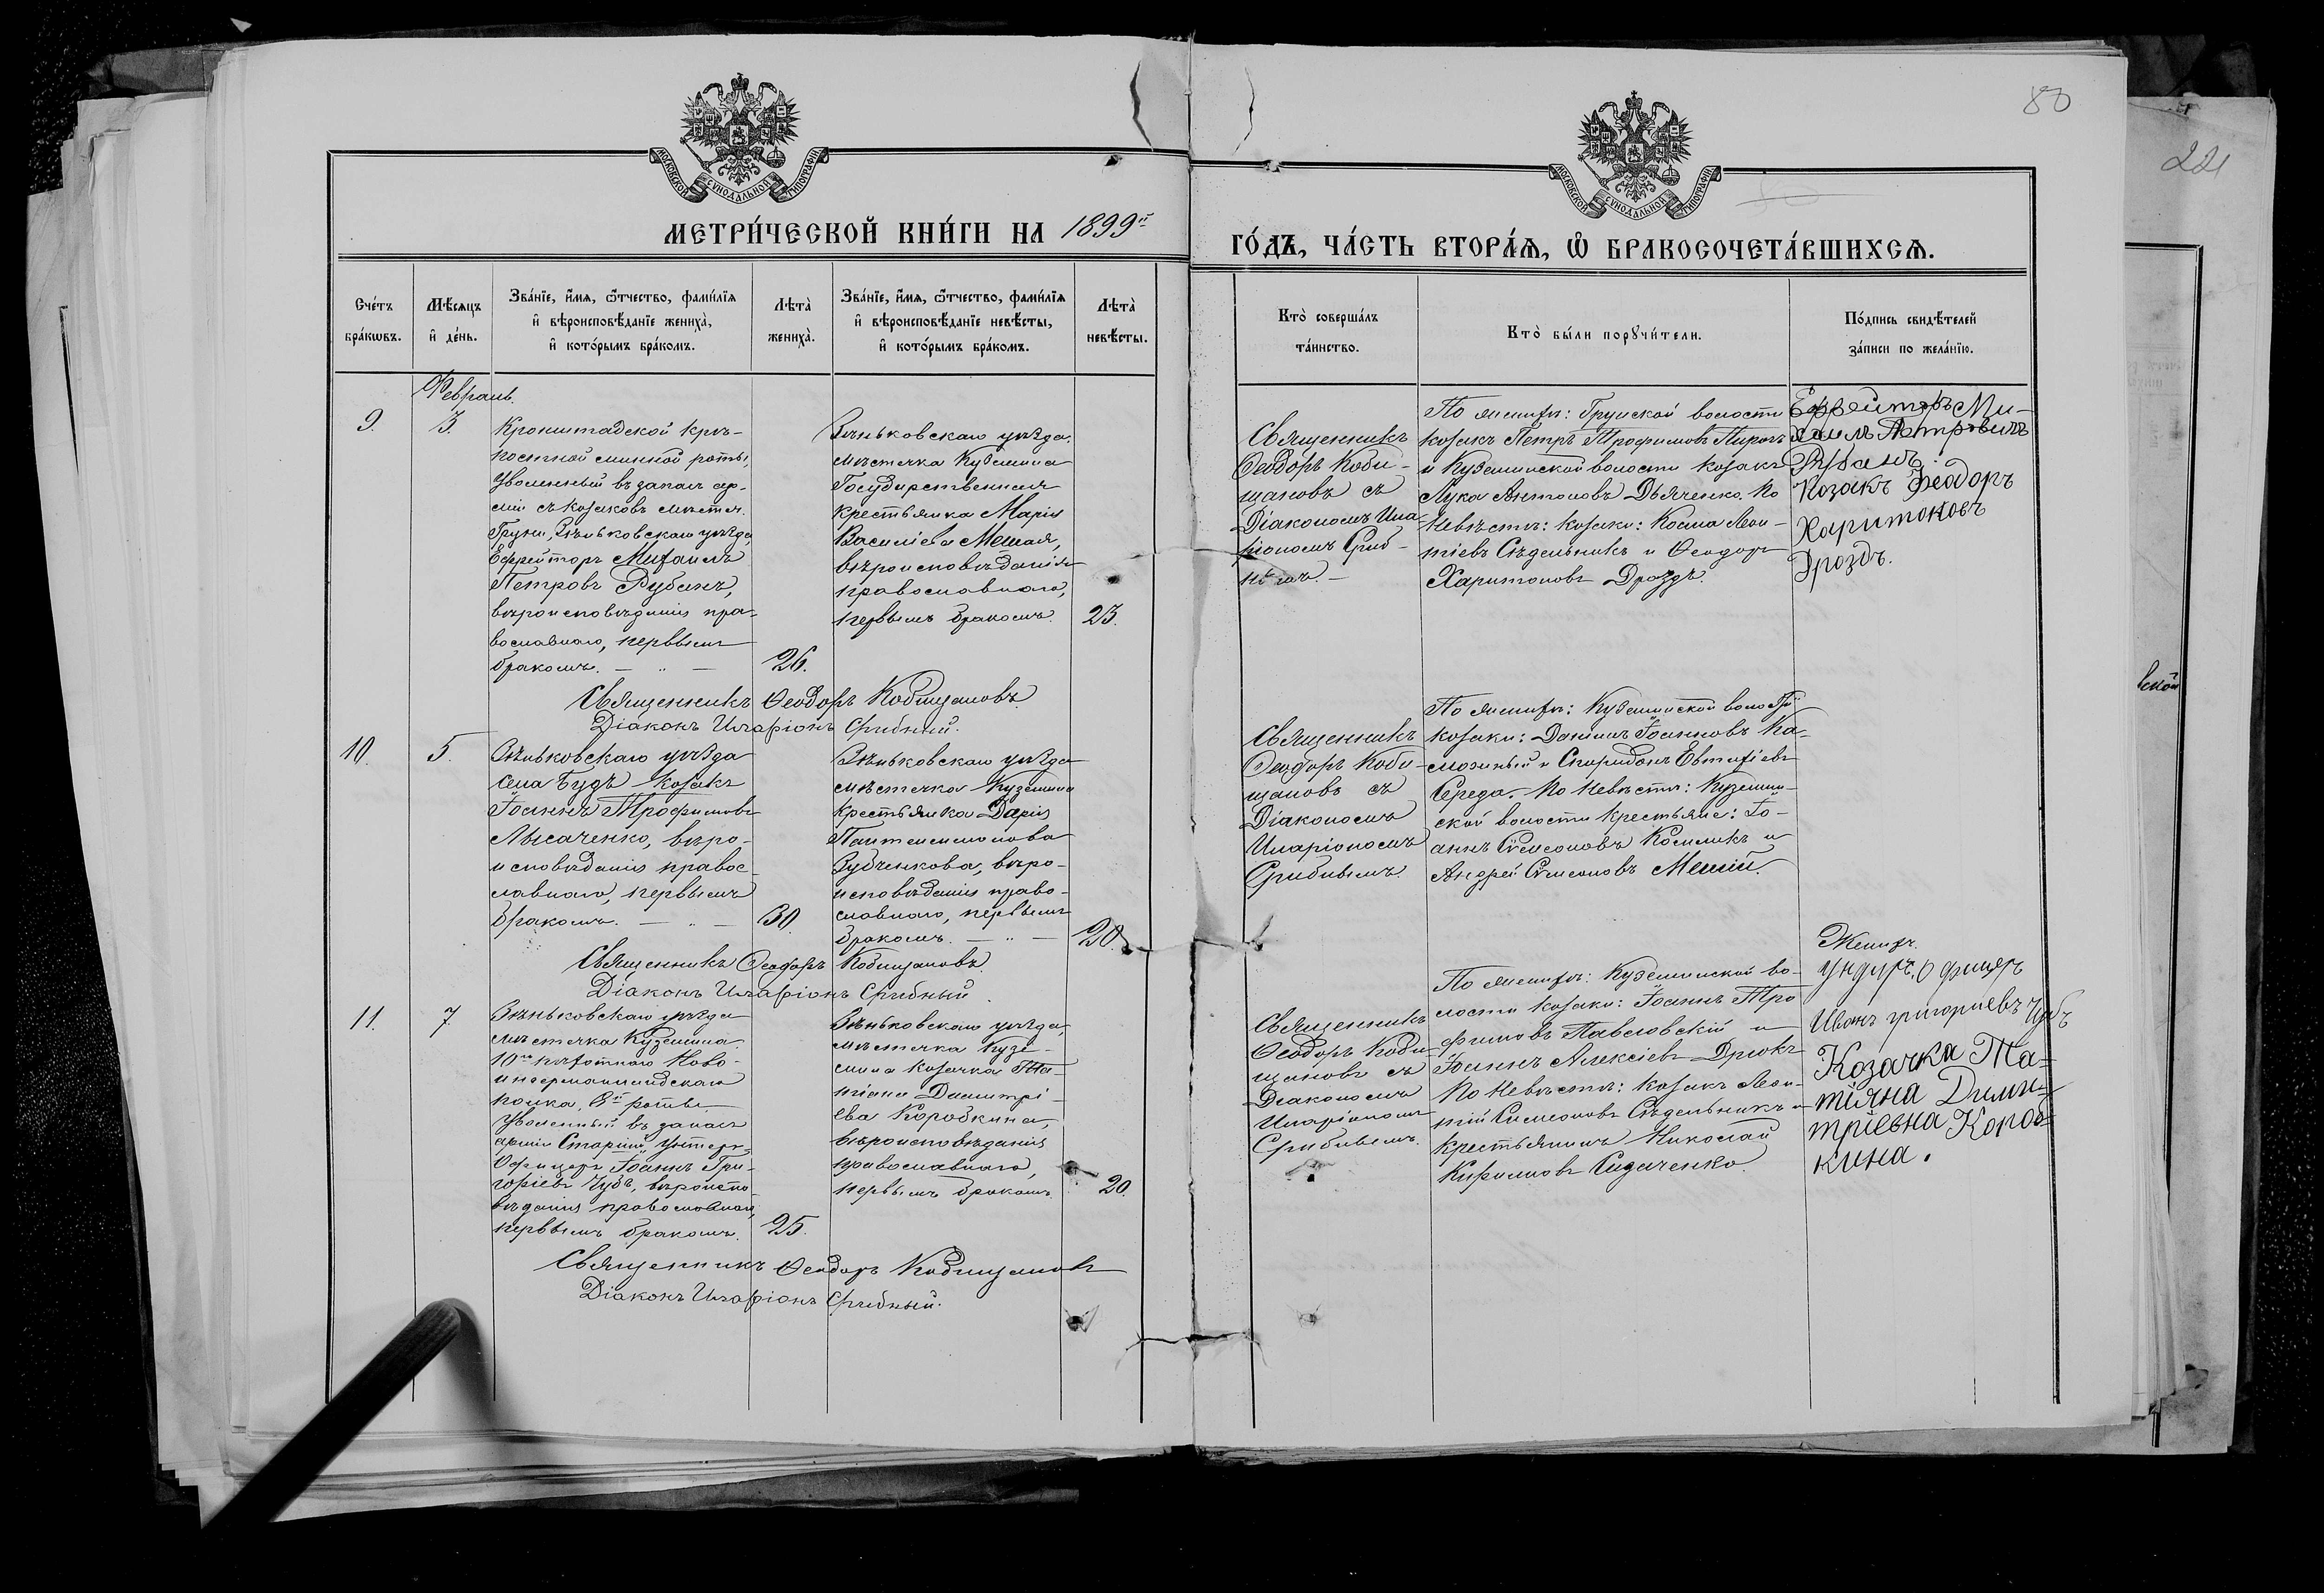 80
221
МОСКОВСКОЙ СУНОДАЛЬНОЙ ТИПОГРАФІИ
МОСКОВСКОЙ СУНОДАЛЬНОЙ ТИПОГРАФІИ
МЕТРИ́ЧЕСКОЙ КНИ́ГИ НА 1899й
ГО́ДЪ, ЧА́СТЬ ВТОРА́Ѧ, Ѡ҆ БРАКОСОЧЕТА́ВШИХСѦ.
Сче́тъ
бра́кѡвъ.
Мѣ́сяцъ
и҆ де́нь.
Зва́нїе, и҆́мѧ, ѻ҆́тчество, фами́лїѧ
и҆ вѣроисповѣ́данїе жениха̀,
и҆ кото́рымъ бра́комъ.
Лѣта̀
жениха̀.
Зва́нїе, и҆́мѧ, ѻ҆́тчество, фами́лїѧ
и҆ вѣроисповѣ́данїе невѣ́сты,
и҆ кото́рымъ бра́комъ.
Лѣта̀
невѣ́сты.
Кто̀ соверша́лъ
та́инство.
Кто̀ бы́ли порꙋчи́тели.
По́дпись свидѣ́телей
за́писи по жела́нїю.
Февраль.
9.
3.
Кронштадской крѣ-
постной минной роты,
уволенный въ запасъ ар-
міи съ козаковъ мѣстеч.
Груни, Зѣньковскаго уѣзда
Ефрейторъ Михаилъ
Петровъ Рубанъ,
вѣроисповѣданія пра-
вославнаго, первымъ
бракомъ. — " —
26.
Зѣньковскаго уѣзда.
мѣстечка Куземина
Государственная
крестьянка Марія
Василіева Мешая,
вѣроисповѣданія
православнаго,
первымъ бракомъ.
23.
Священникъ
Ѳеодоръ Коби-
щановъ съ
Діакономъ Ила-
ріономъ Сриб-
нымъ. —
По женихѣ: Грунской волости
козакъ Петръ Трофимовъ Пирогъ
и Куземинской волости козакъ
Лука Антоновъ Дьяченко. По
невѣстѣ: козаки: Косма Леон-
тіевъ Сѣдельникъ и Ѳеодоръ
Харитоновъ Дроздъ.
Ефрейторъ Ми-
хаилъ Петровичъ
Рубанъ
Козакъ Феодоръ
Харитоновъ
Дроздъ.
Священникъ Ѳеодоръ Кобищановъ
Діаконъ Иларіонъ Срибный.
10.
5.
Зѣньковскаго уѣзда
села Будъ козакъ
Іоаннъ Трофимовъ
Лысаченко, вѣро-
исповѣданія правос-
лавнаго, первымъ
бракомъ. — " —
30.
Зѣньковскаго уѣзда
мѣстечка Куземина
крестьянка Дарія
Пантелеимонова
Зубченкова, вѣро-
исповѣданія право-
славнаго, первымъ
бракомъ. — " —
20.
Священникъ
Ѳеодоръ Коби-
щановъ съ
Діакономъ
Иларіономъ
Срибнымъ.
По женихѣ: Куземинской воло
козаки: Даніилъ Іоанновъ Ка-
и Спиридонъ Евтихіевъ
Середа. По невѣстѣ: Куземин-
ской волости крестьяне: Іо-
аннъ Сѵмеоновъ и
Андрей Сѵмеоновъ Мешій.
Священникъ Ѳеодоръ Кобищановъ
Діаконъ Иларіонъ Срибный
11.
7.
Зѣньковскаго уѣзда
мѣстечка Куземина.
10го пѣхотнаго Ново-
ингерманландскаго
полка, 8й роты
уволенный въ запасъ
арміи Старшій Унтеръ-
Офицеръ Іоаннъ Гри-
горіевъ Чубъ, вѣроиспо-
вѣданія православнаго,
первымъ бракомъ.
25.
Зѣньковскаго уѣзда,
мѣстечка Кузе-
мина козачка Та-
тіана Димитрі-
ева Коробкина,
вѣроисповѣданія
православнаго,
первымъ бракомъ
20.
Священникъ
Ѳеодоръ Коби-
щановъ съ
Діакономъ
Иларіономъ
Срибнымъ.
По женихѣ: Куземинской во-
лости козаки: Іоаннъ Тро
фимовъ Павловскій и
Іоаннъ Алексіевъ Дрюкъ
По невѣстѣ: козакъ Леон-
тій Симеоновъ Сѣдельникъ и
крестьянинъ Николай
Кириловъ Сидаченко.
Женихъ.
Ундуръ. Офицеръ
Иванъ григориевъ Чубъ
Козачка Та-
тіяна Дими-
тріевна Короб-
кина.
Священникъ Ѳеодоръ Кобищановъ
Діаконъ Иларіонъ Срибный.